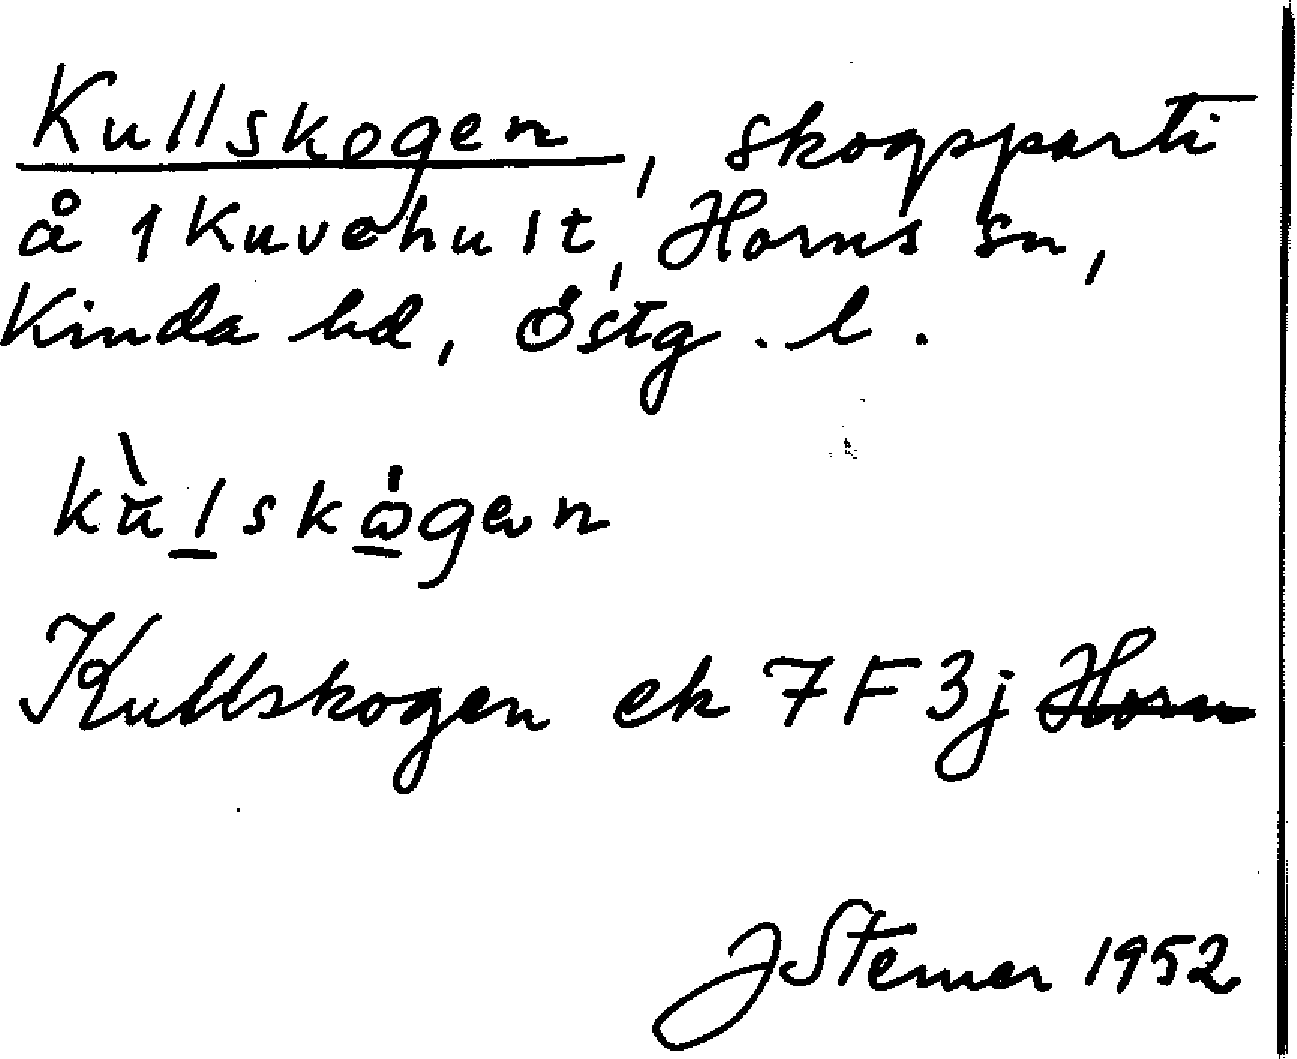 Kullskogen, skogsparti
å 1 Kuvehult, Horns sn,
Kinda hd, Östg. l.
kùlskȯgan
Kullskogen ek 7F3j Horn
J Sterner 1952